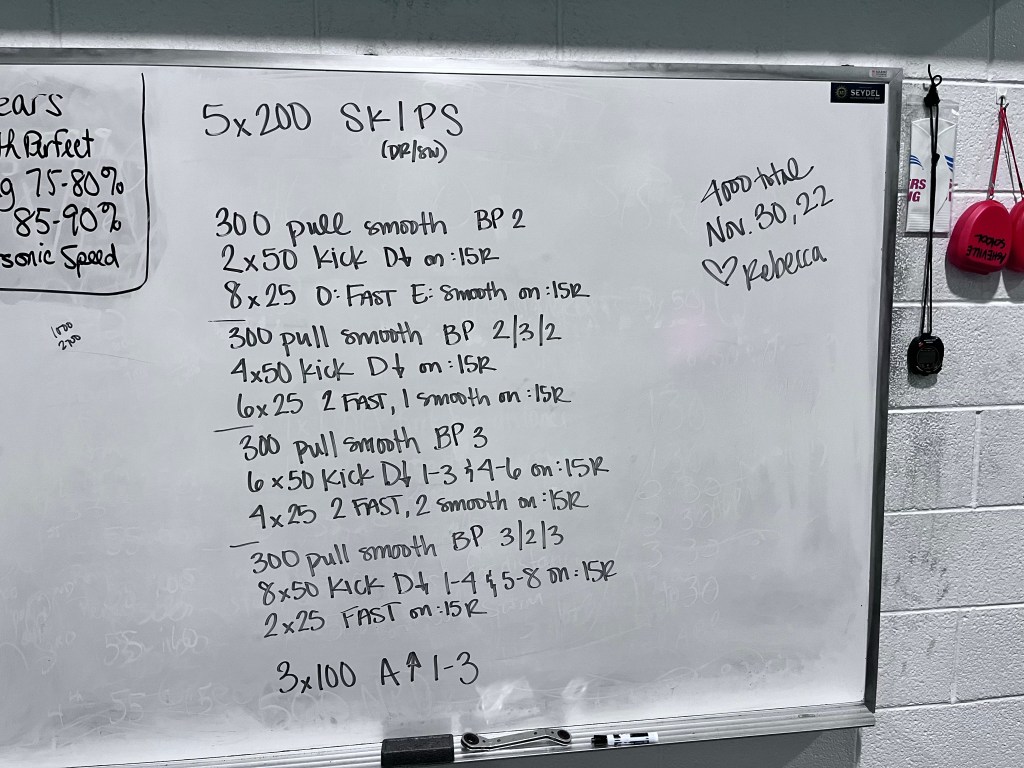 ears
th Perfect
g 75-80%
85-90%
sonic Speed
1500
2700
5x200 SKIPS
(DR/SW)
300 pull smooth BP 2
2x50 Kick D↓ on :15R
8x25 O: FAST E: Smooth on :15R
300 pull smooth BP 2/3/2
4x50 kick D↓ on :15R
6x25 2 FAST, 1 smooth on :15R
300 pull smooth BP 3
6x50 Kick D↓ 1-3 & 4-6 on :15R
4x25 2 FAST, 2 smooth on :15R
300 pull smooth BP 3/2/3
8x50 Kick D↓ 1-4 & 5-8 on :15R
2x25 FAST on :15R
3x100 A↑ 1-3
4000 total
Nov. 30, 22
♡ Rebecca
SEYDEL
RS
NG
ASHEVILLE
SCHOOL